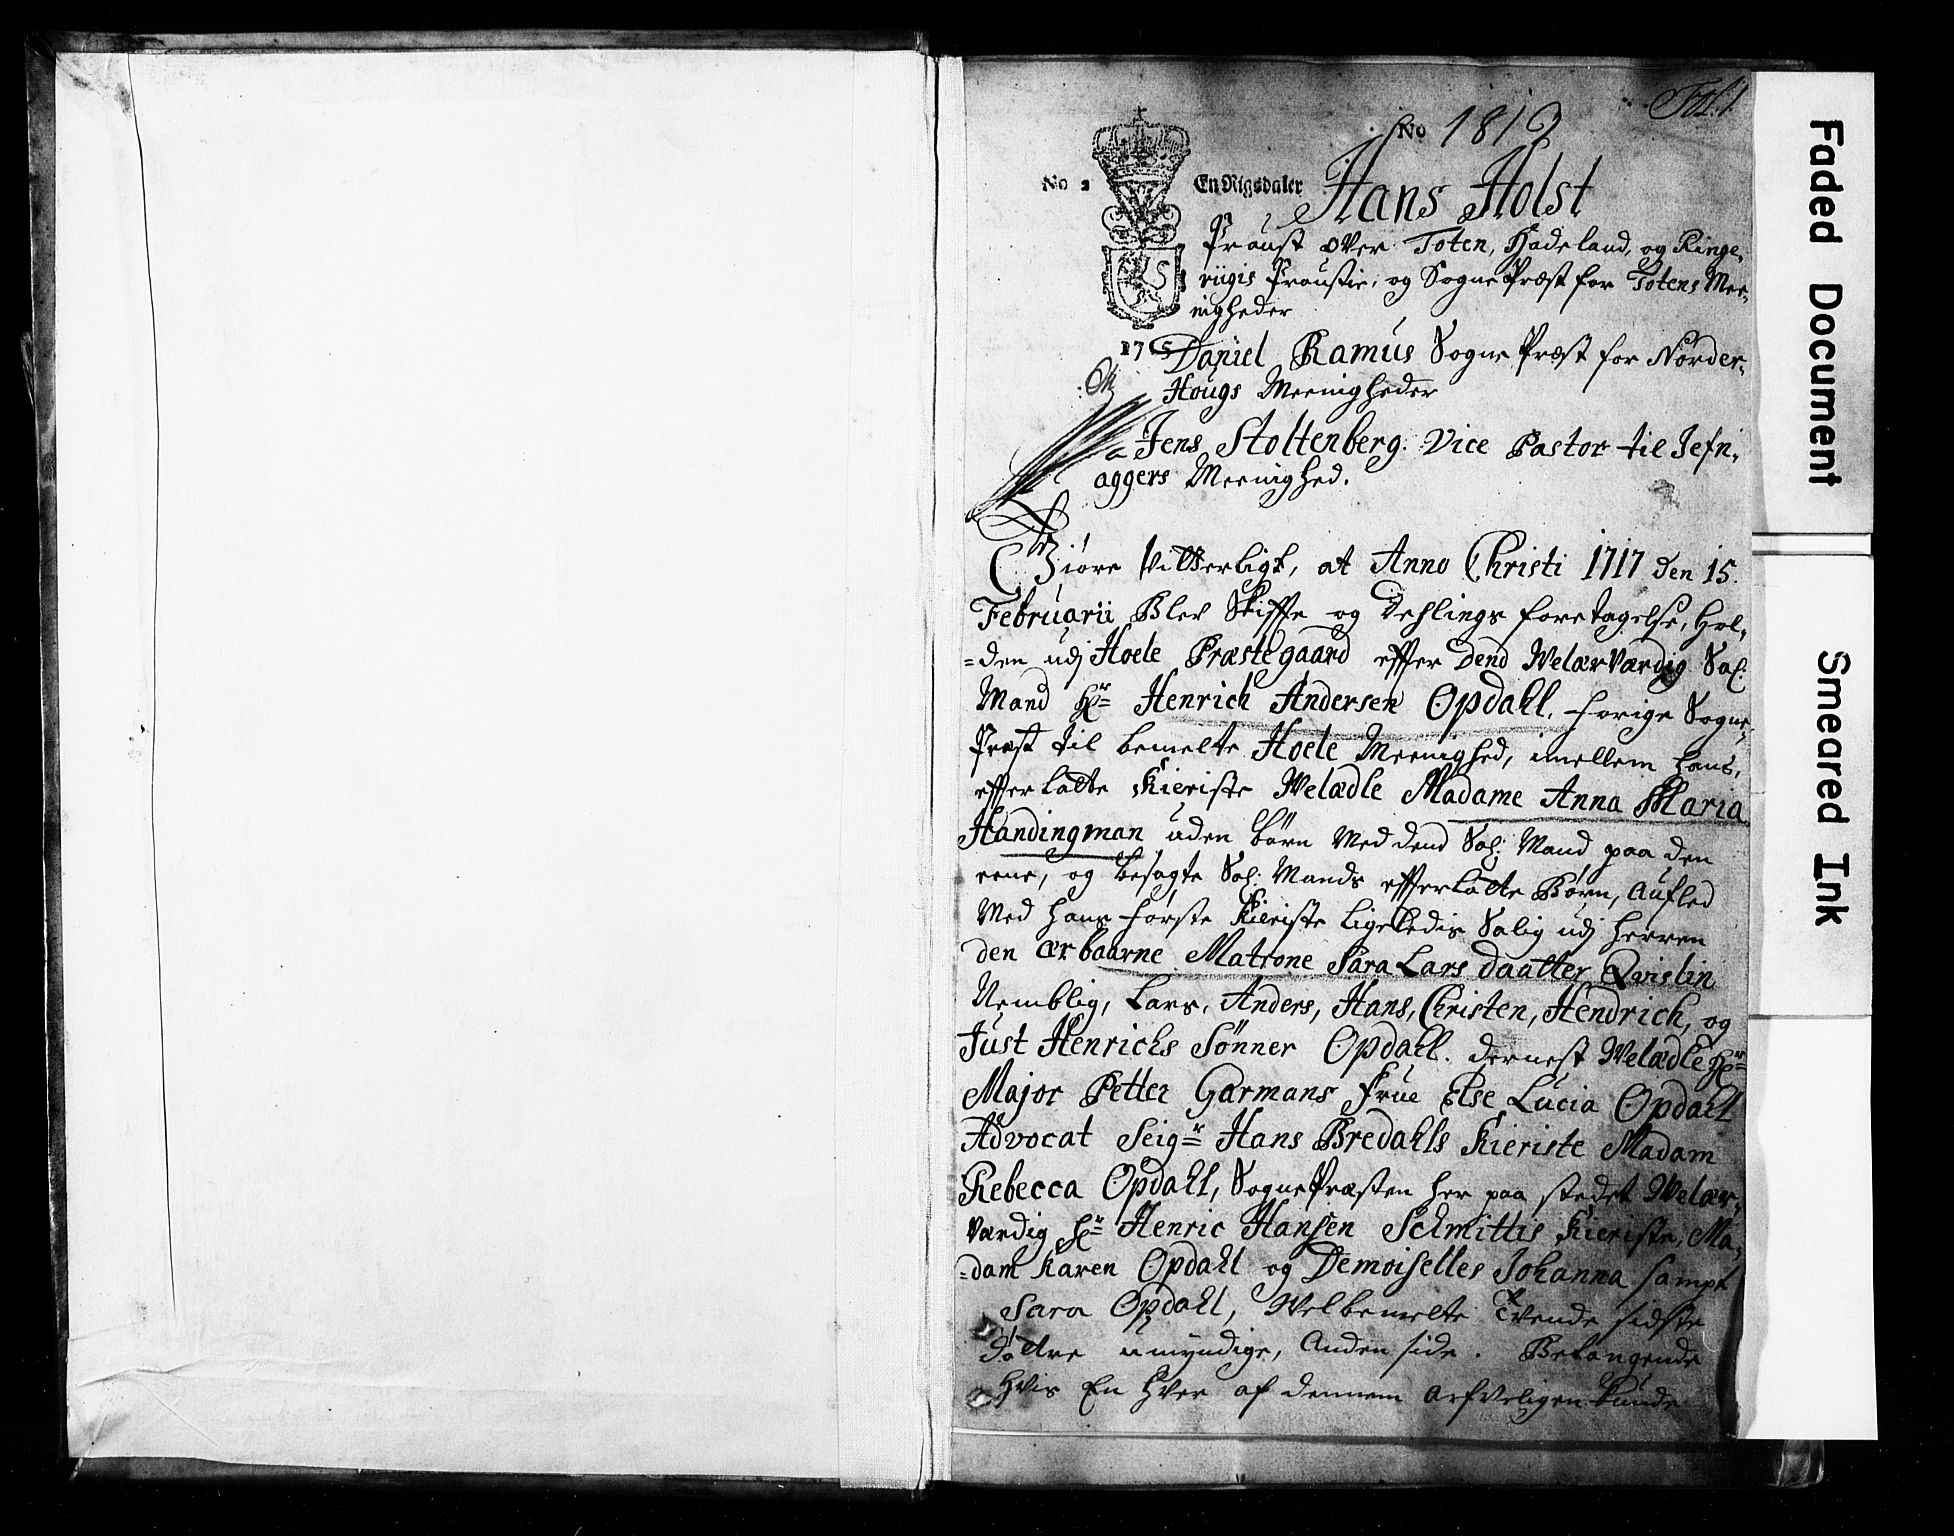 Fol. 1
No 1812
No 2 En Rigsdaler
Hans Holst
Proust over Toten, Hadeland, og Ringe,
riigis Proustie, og Sogne Præst for Totens Mee,
nigheder
1715
Daniel Ramus Sogne Præst for Norder,
Hougs Meenigheder
Jens Stoltenberg. Vice Pastor til Jefn,
aggers Meenighed.
Giøre Vitterligt, at Anno Christi 1717 den 15.
Februarii Blev Skiffte og Dehlings foretagelse, Hol,
=den udj Hoele Præstegaard effter Dend Velærværdig Sal:
Mand Hr= Henrich Andersen Opdahl. forige Sogne,
Præst til bemelte Hoele Meenighed, imellem hans,
effterlatte Kieriste Velædle Madame Anna Maria
Handingman uden børn Med dend Sal: Mand paa den
eene, og besagte Sal: Mands effterlatte Børn, Aufled
Med hans første Kieriste ligeledis Salig udj herren
den ærbaarne Matrone Sara Lars daatter Qvislin
Nemblig, Lars, Anders, Hans, Christen, Hendrich, og
Just Henrichs Sønner Opdahl. dernest Velædle Hr=
Major Petter Garmans Frue Else Lucia Opdahl
Advocat Seigr= Hans Bredahls Kieriste Madam
Rebecca Opdahl, Sogne Præsten her paa stedet Velær,
værdig Hr= Henric Hansen Schmittis Kieriste, Ma,
=dam Karen Opdahl og Demoiselles Johanna sampt
Sara Opdahl, Velbemelte tvende sidste
døttre umyndige, Anden side. Belangende
hvis En hver af dennem arfveligen kunde
Faded Document
Smeared Ink